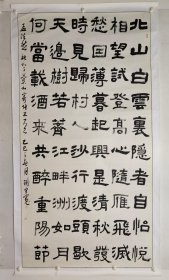 北山白雲裏隱者自怡悅
相望試登高心隨雁飛滅
愁因薄暮起興是清秋發
時見歸村人沙行渡頭歇
天邊樹若薺江畔洲如月
何當載酒來共醉重陽節
孟浩然